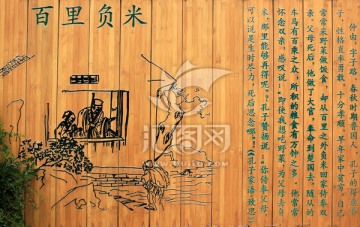 百里负米
仲由，字子路，春秋时期鲁人。孔子的得意弟
子，性格直率勇敢，十分孝顺。早年家中贫穷，自己
常常采野菜做饭食，却从百里之外负米回家侍奉双
亲。父母死后，他做了大官，奉命到楚国去，随从的
车马有百乘之众，所积的粮食有万钟之多。他常常
怀念双亲，感叹说：“即使我想吃野菜，为父母去负
米，哪里能够再得呢？”孔子赞扬说：“你侍奉父母，
可以说是生时尽力，死后思念哪！”（《孔子家语·致思》）
汇图网